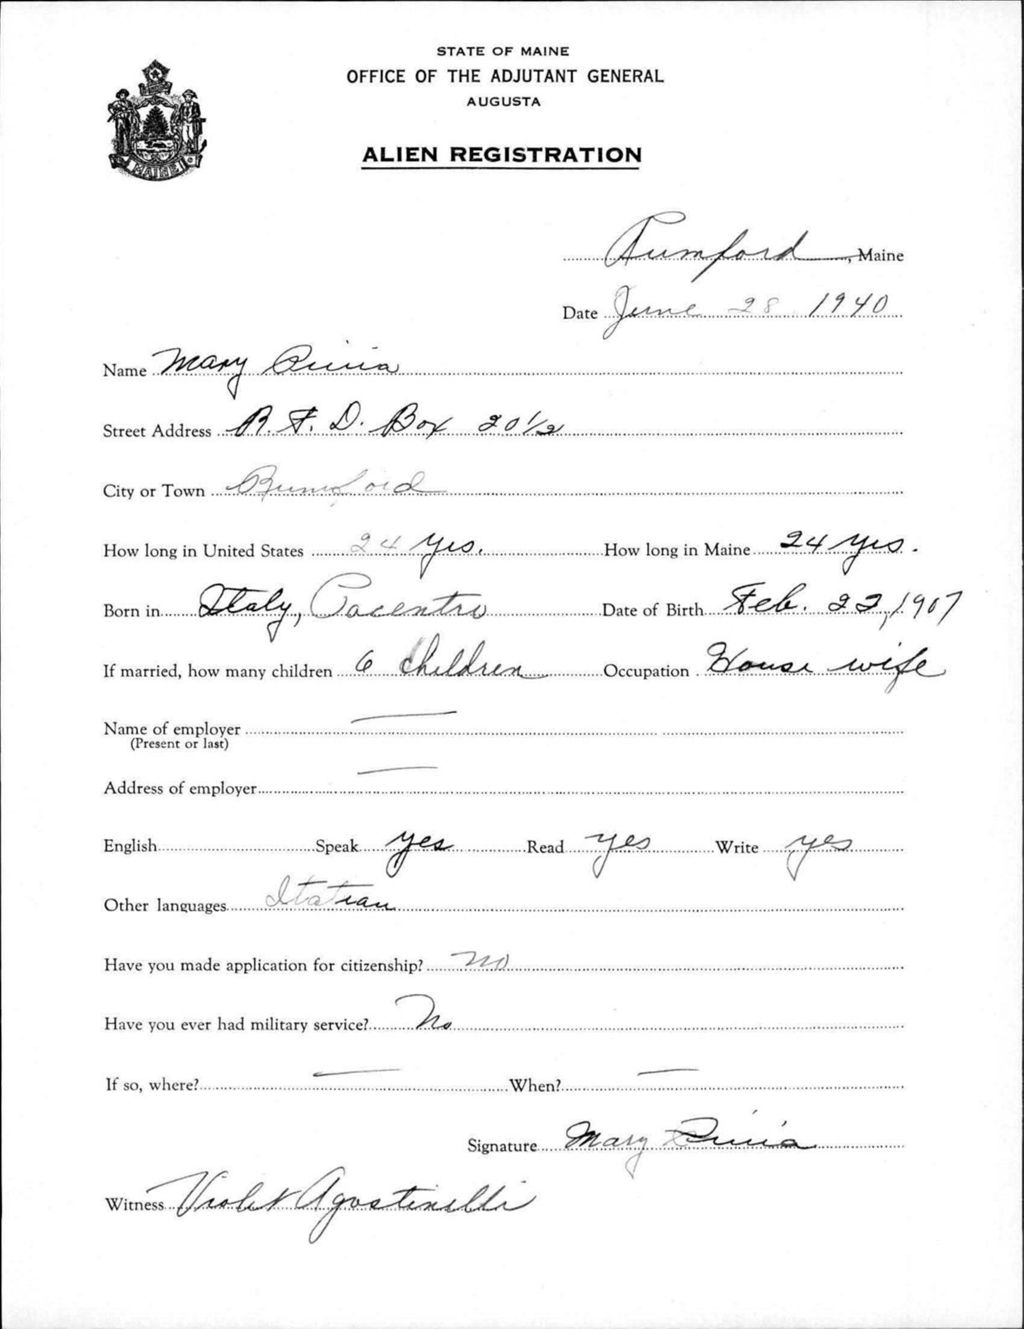 STATE OF MAINE
OFFICE OF THE ADJUTANT GENERAL
AUGUSTA
ALIEN REGISTRATION
MAINE
Rumford, Maine
Date June 28 1940
Name Mary
Street Address R. F. D. Box 20 1/2
City or Town Rumford
How long in United States 24 yrs. How long in Maine 24 yrs.
Born in Italy, Pacentro Date of Birth Feb. 22, 1907
If married, how many children 6 children Occupation House wife
Name of employer —
(Present or last)
Address of employer —
English Speak yes Read yes Write yes
Other languages Italian
Have you made application for citizenship? no
Have you ever had military service? No
If so, where? — When? —
Signature Mary
Witness Violet Agostinelli